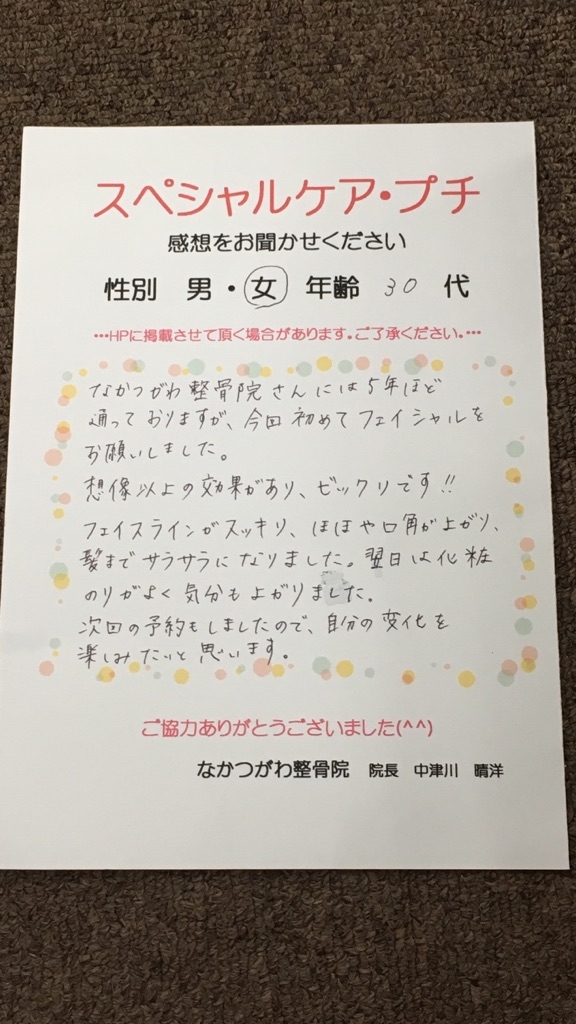 スペシャルケア・プチ
感想をお聞かせください
性別 男・女 年齢 30 代
…HPに掲載させて頂く場合があります。ご了承ください。…
なかつがわ整骨院さんには5年ほど
通っておりますが、今回初めてフェイシャルを
お願いしました。
想像以上の効果があり、ビックリです!!
フェイスラインがスッキリ、ほほや口角が上がり、
髪までサラサラになりました。翌日は化粧
のりがよく気分も上がりました。
次回の予約もしましたので、自分の変化を
楽しみたいと思います。
ご協力ありがとうございました(^^)
なかつがわ整骨院 院長 中津川 晴洋